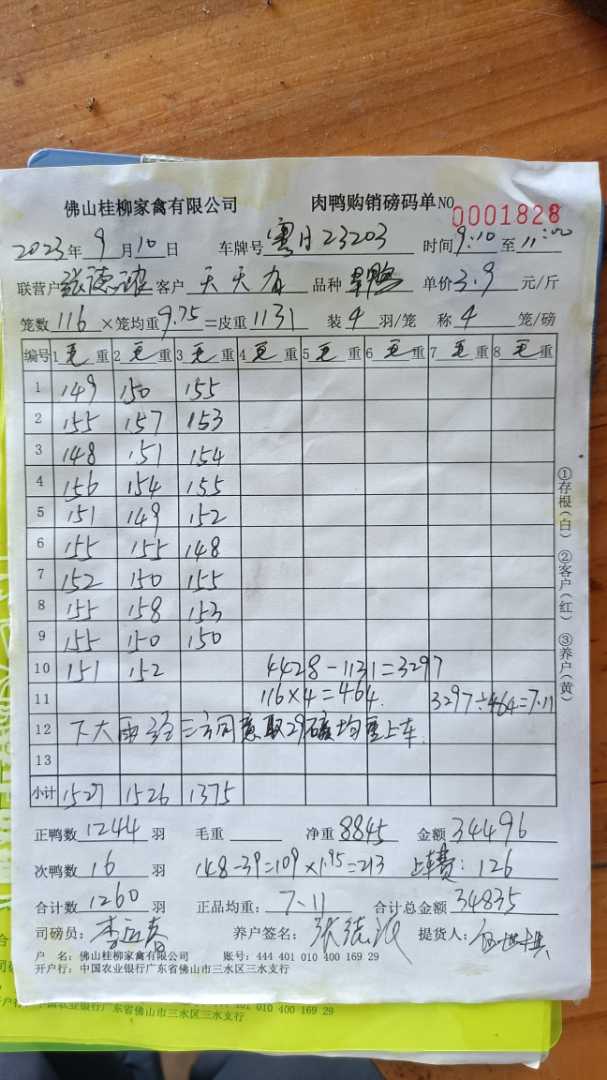 佛山桂柳家禽有限公司 肉鸭购销磅码单 NO 0001828
2023年9月10日 车牌号 粤H23203 时间9:10至11:00
联营户 客户 天天有 品种 单价3.9元/斤
笼数116×笼均重9.75=皮重1131 装4羽/笼 称4笼/磅
编号 1毛重 2毛重 3毛重 4毛重 5毛重 6毛重 7毛重 8毛重
1 149 150 155
2 155 157 153
3 148 151 154
4 156 154 155
5 151 149 152
6 155 155 148
7 152 150 155
8 155 158 153
9 155 150 150
10 151 152 4428-1131=3297
11 116×4=464. 3297÷464=7.11
12 下大雨经三方同意取29磅均重上车.
13
小计 1527 1526 1375
正鸭数1244羽 毛重 净重8845 金额34496
次鸭数16羽 148-39=109×1.95=213 上车费:126
合计数1260羽 正品均重:7.11 合计总金额34835
司磅员: 养户签名: 提货人:
户 名:佛山桂柳家禽有限公司 账号:444 401 010 400 169 29
开户行:中国农业银行广东省佛山市三水区三水支行
①存根(白) ②客户(红) ③养户(黄)
中国农业银行广东省佛山市三水区三水支行